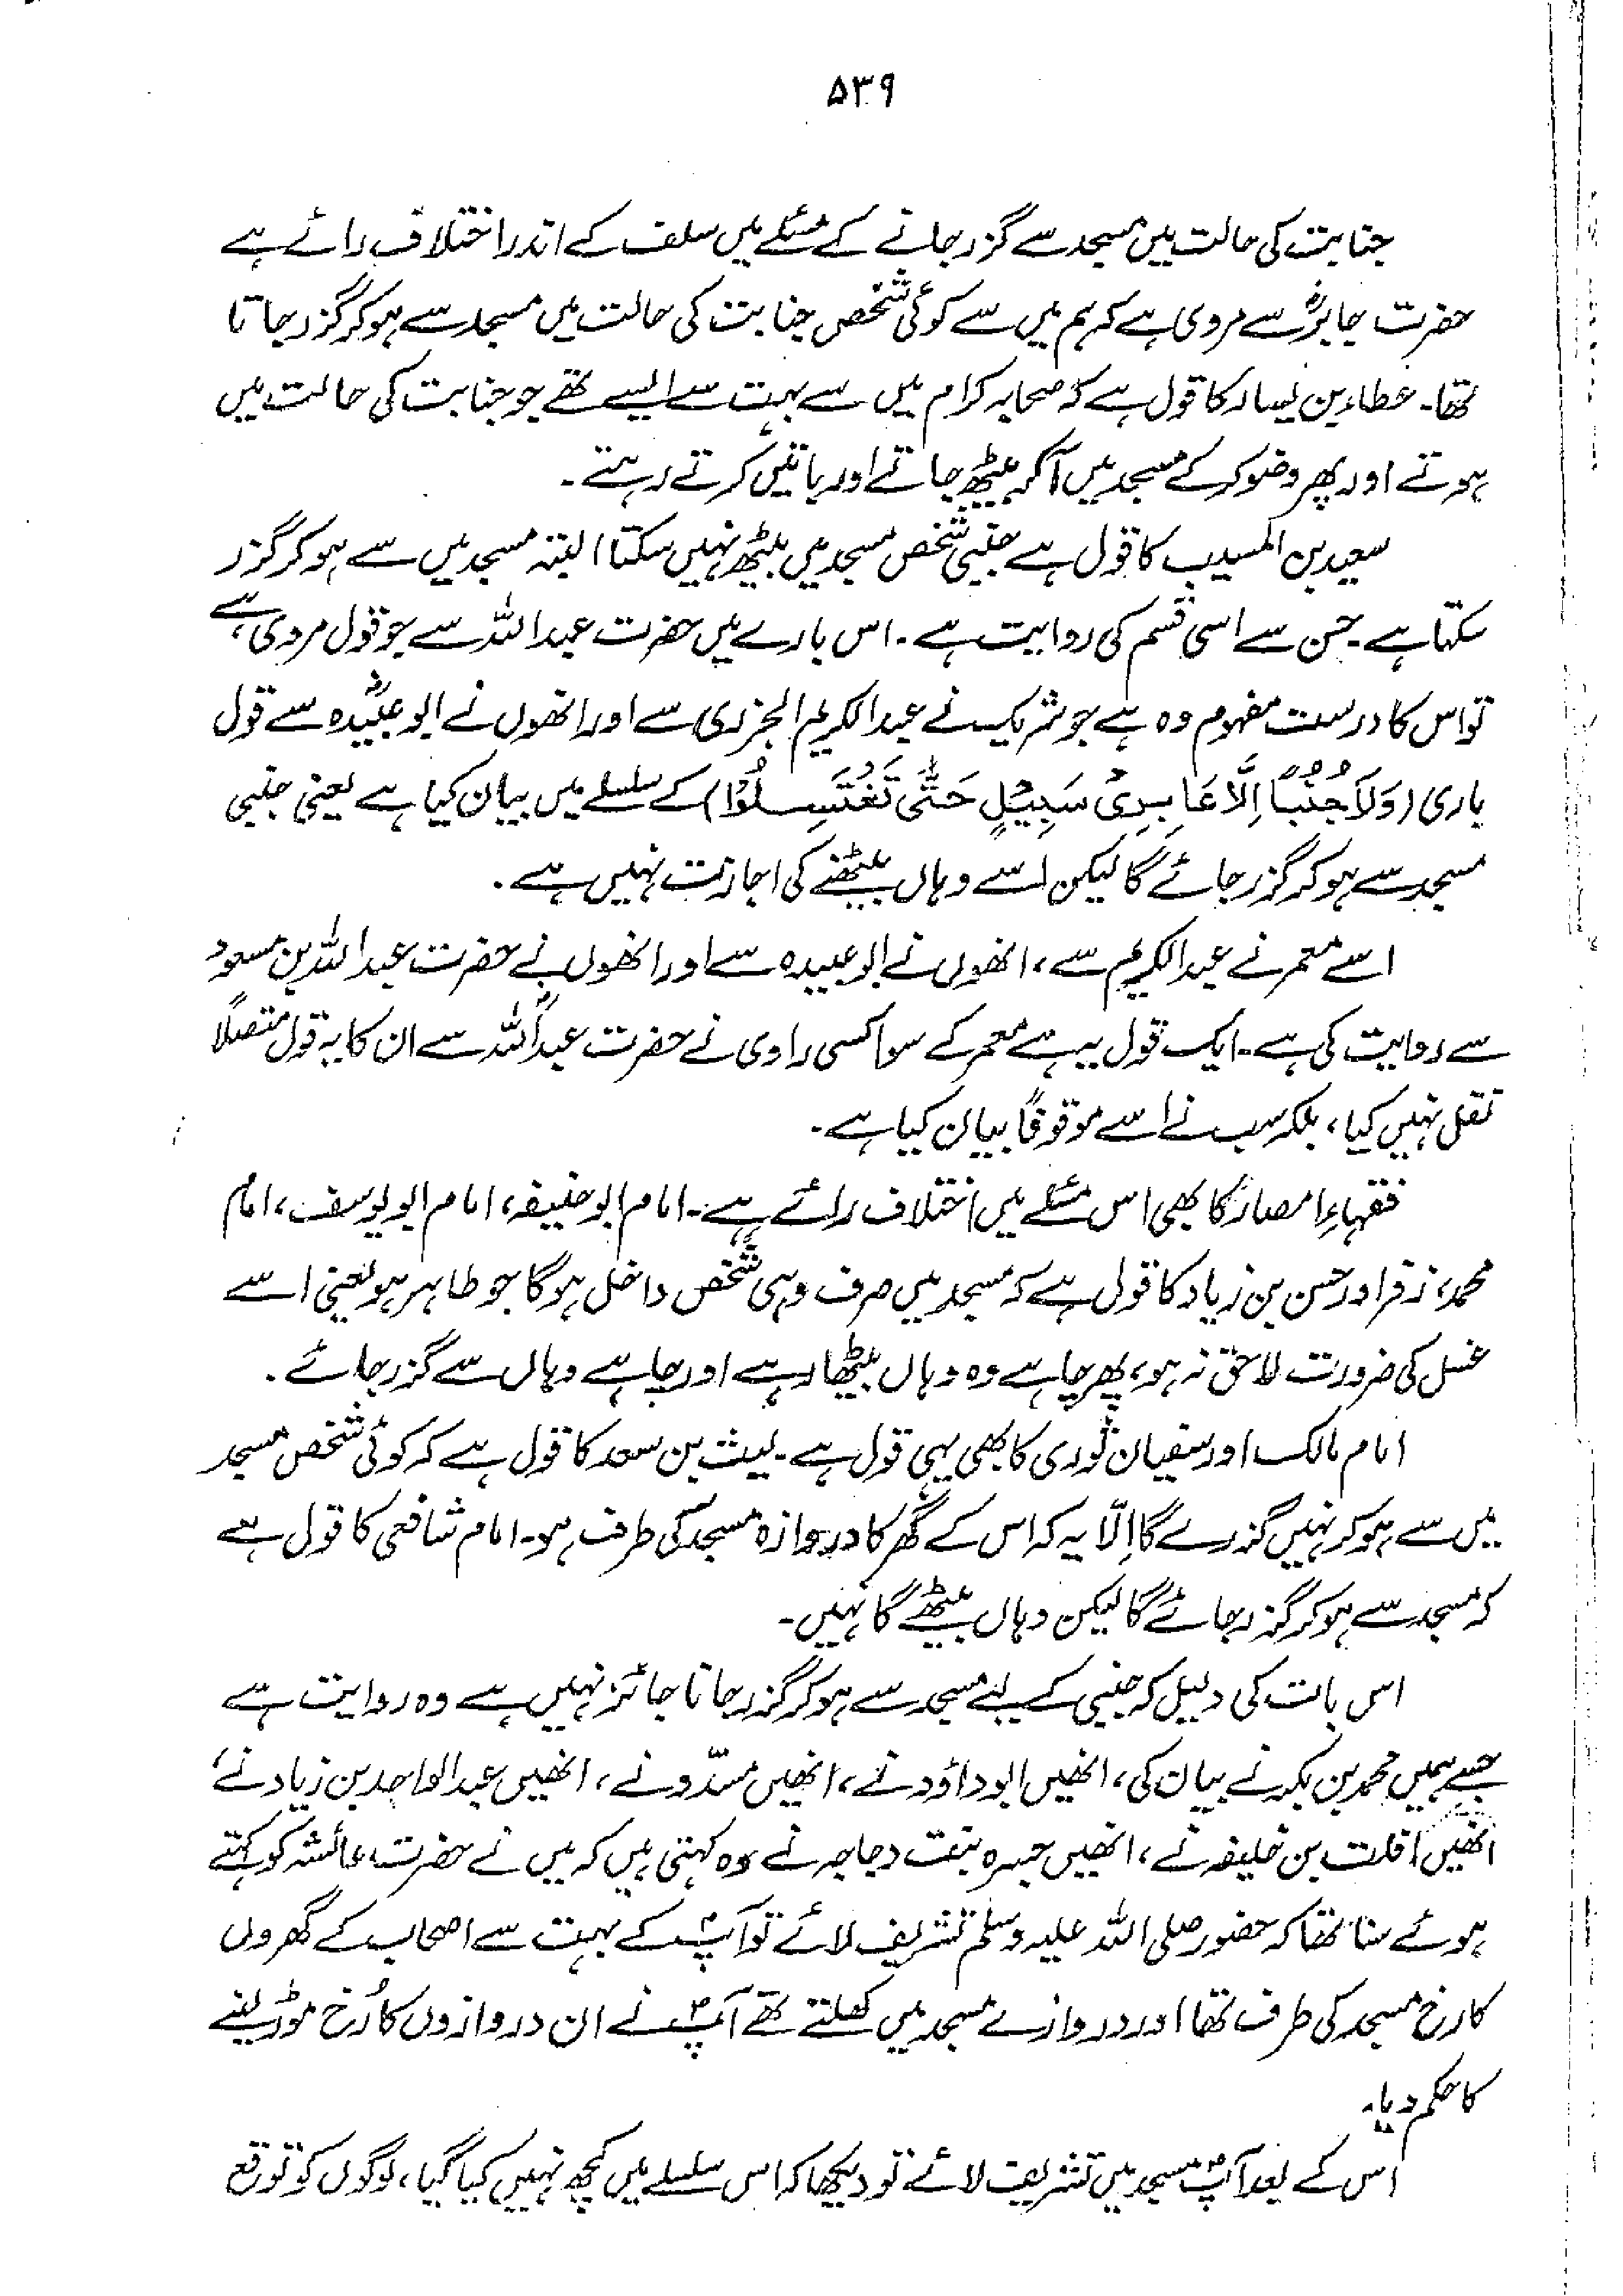 ۵۳۹
جنابت کی حالت میں مسجد سے گزر جانے کے مسئلے میں سلف کے اندر اختلاف رائے ہے
حضرت جابرؓ سے مروی ہے کہ ہم میں سے کوئی شخص جنابت کی حالت میں مسجد سے ہو کر گزر جاتا
تھا۔ عطاء بن یسار کا قول ہے کہ صحابہ کرام میں سے بہت سے ایسے تھے جو جنابت کی حالت میں
ہوتے اور پھر وضو کر کے مسجد میں آ کر بیٹھ جاتے اور باتیں کرتے رہتے۔
سعید بن المسیب کا قول ہے جنبی شخص مسجد میں بیٹھ نہیں سکتا البتہ مسجد میں سے ہو کر گزر
سکتا ہے۔ حسن سے اسی قسم کی روایت ہے۔ اس بارے میں حضرت عبداللہ سے جو قول مروی ہے،
تو اس کا درست مفہوم وہ ہے جو شریک نے عبدالکریم الجزری سے اور انھوں نے ابو عبیدہؓ سے قول
باری (وَلَا جُنُبًا اِلَّا عَابِرِیْ سَبِیْلٍ حَتّٰی تَغْتَسِلُوْا) کے سلسلے میں بیان کیا ہے یعنی جنبی
مسجد سے ہو کر گزر جائے گا لیکن اسے وہاں بیٹھنے کی اجازت نہیں ہے۔
اسے معمر نے عبدالکریم سے، انھوں نے ابو عبیدہ سے اور انھوں نے حضرت عبداللہ بن مسعود
سے روایت کی ہے۔ ایک قول یہ ہے معمر کے سوا کسی راوی نے حضرت عبداللہؓ سے ان کا یہ قول متصلاً
نقل نہیں کیا، بلکہ سب نے اسے موقوفاً بیان کیا ہے۔
فقہاءِ امصار کا بھی اس مسئلے میں اختلاف رائے ہے۔ امام ابو حنیفہ، امام ابو یوسف، امام
محمد، زفر اور حسن بن زیاد کا قول ہے کہ مسجد میں صرف وہی شخص داخل ہوگا جو طاہر ہو یعنی اسے
غسل کی ضرورت لاحق نہ ہو، پھر چاہے وہ وہاں بیٹھا رہے اور چاہے وہاں سے گزر جائے۔
امام مالک اور سفیان ثوری کا بھی یہی قول ہے۔ لیث بن سعد کا قول ہے کہ کوئی شخص مسجد
میں سے ہو کر نہیں گزرے گا اِلّا یہ کہ اس کے گھر کا دروازہ مسجد کی طرف ہو۔ امام شافعی کا قول ہے
کہ مسجد سے ہو کر گزر جائے گا لیکن وہاں بیٹھے گا نہیں۔
اس بات کی دلیل کہ جنبی کے لیے مسجد سے ہو کر گزر جانا جائز نہیں ہے وہ روایت ہے
جسے ہمیں محمد بن بکر نے بیان کی، انھیں ابو داؤد نے، انھیں مسدّد نے، انھیں عبدالواحد بن زیاد نے،
انھیں افلت بن خلیفہ نے، انھیں جسرہ بنت دجاجہ نے وہ کہتی ہیں کہ میں نے حضرت عائشہ کو کہتے
ہوئے سنا تھا کہ حضور صلی اللہ علیہ وسلم تشریف لائے تو آپؐ کے بہت سے اصحاب کے گھروں
کا رخ مسجد کی طرف تھا اور دروازے مسجد میں کھلتے تھے آپؐ نے ان دروازوں کا رُخ موڑ لینے
کا حکم دیا۔
اس کے بعد آپؐ مسجد میں تشریف لائے تو دیکھا کہ اس سلسلے میں کچھ نہیں کیا گیا، لوگوں کو توقع